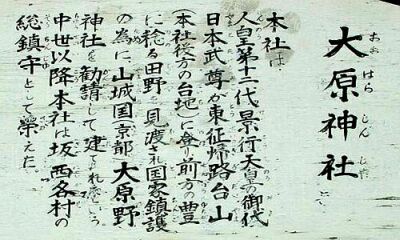 大原神社
本社は、
人皇第十二代景行天皇の御代
日本武尊が東征帰路台山
(本社後方の台地)に登り前方の豊
に稔る田野を見渡され国家鎮護
の為に、山城国京都大原野
神社を勧請して建てられたという
中世以降本社は坂西各村の
総鎮守として栄えた。